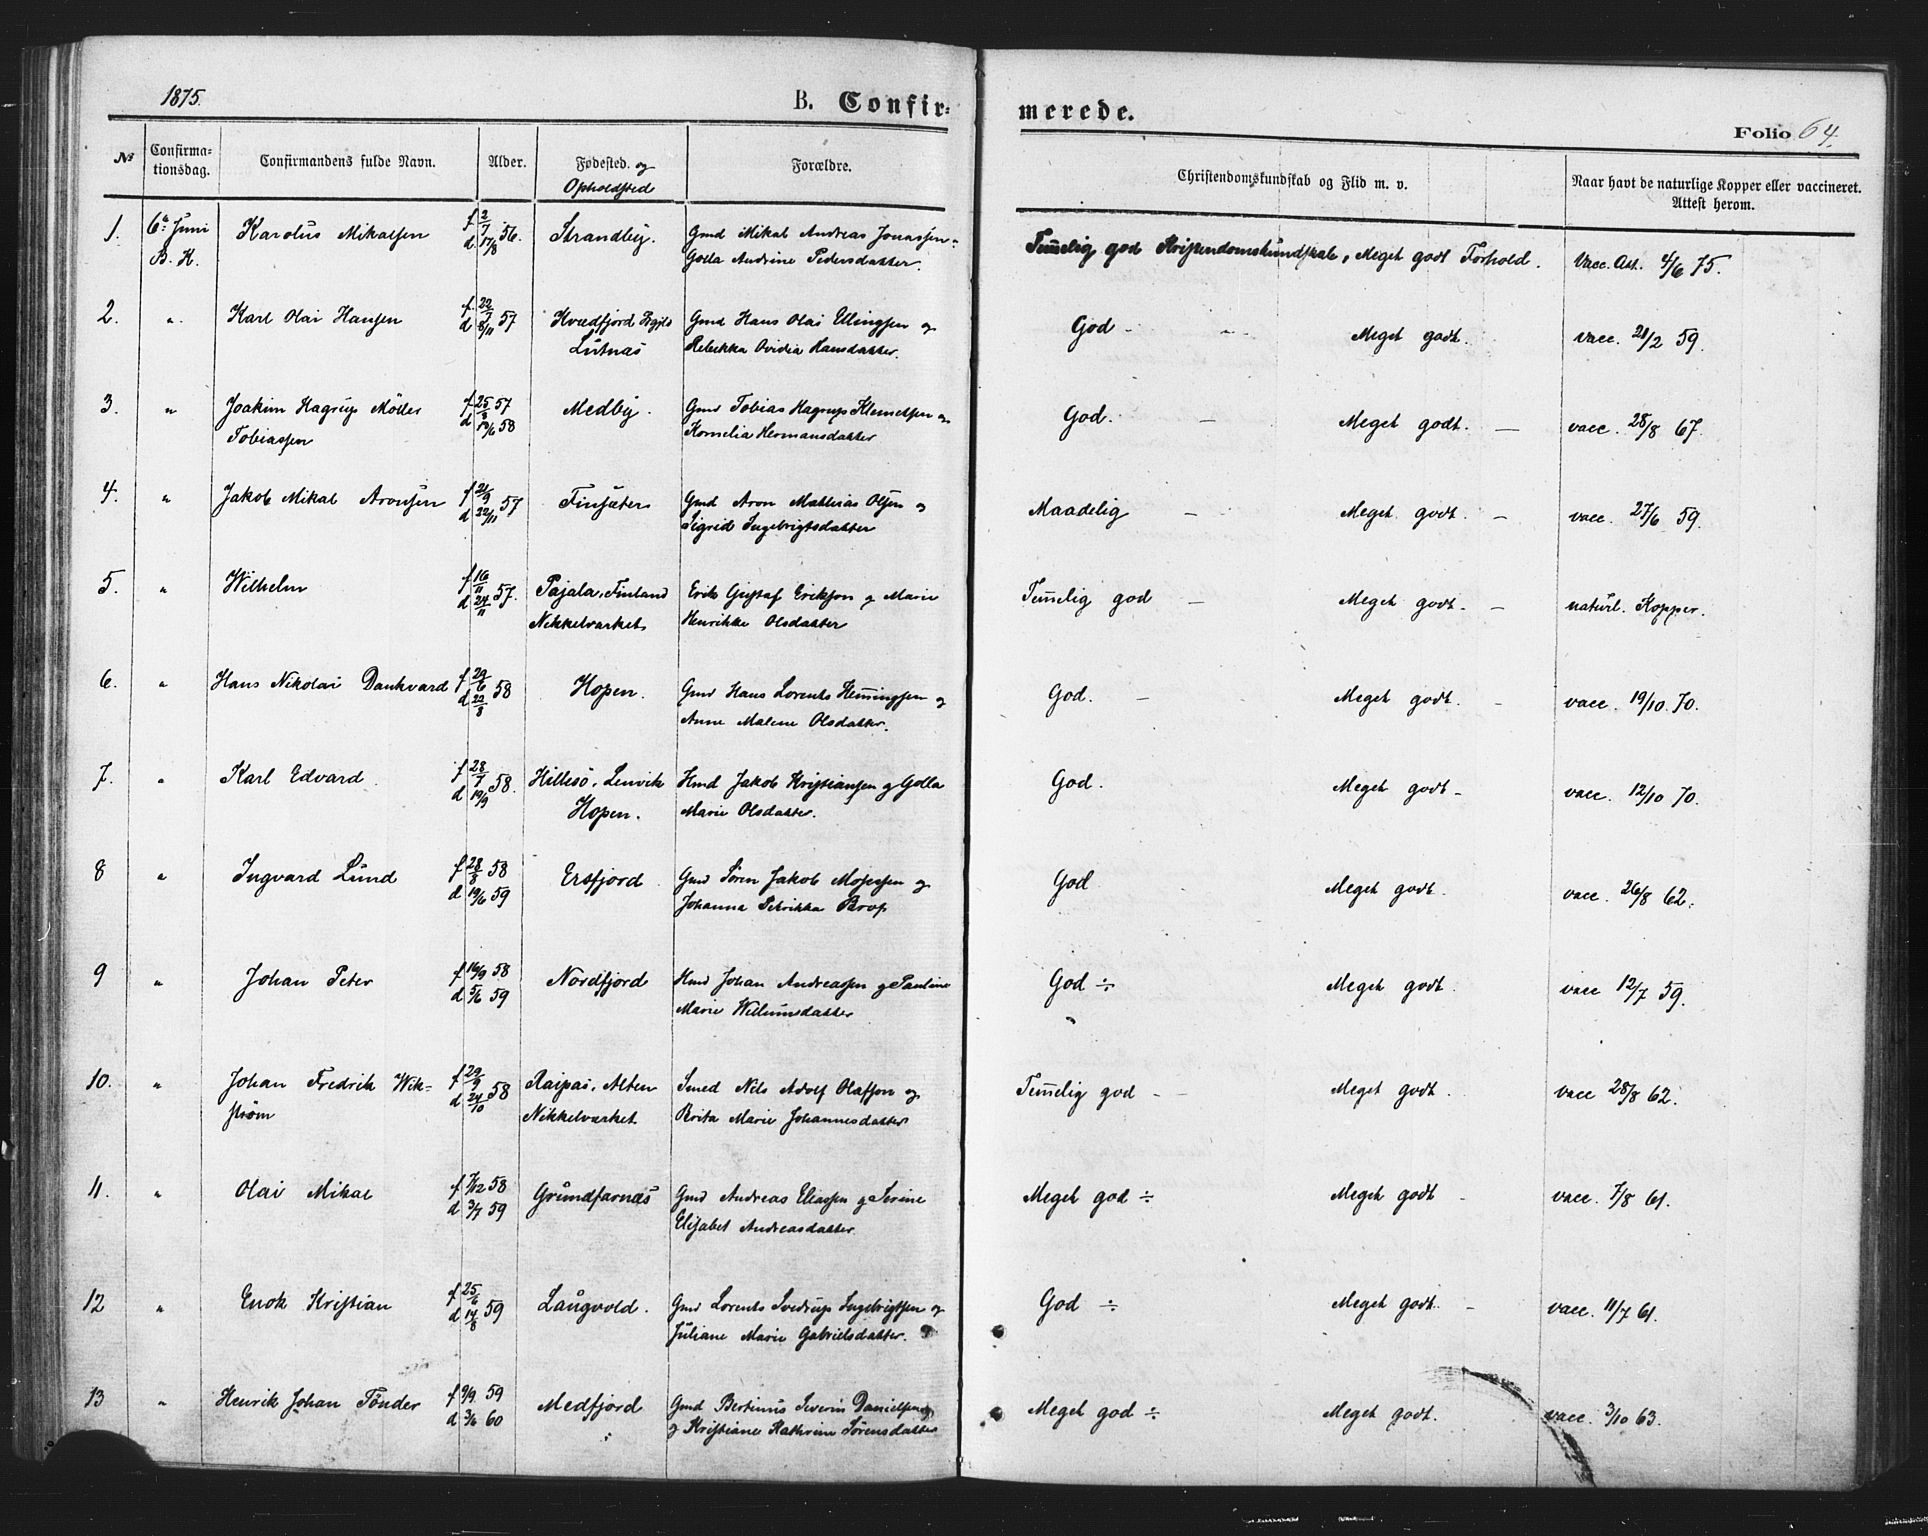 1875.
B. Confir-
merede.
Folio 64.
№
Confirma-
tionsdag.
Confirmandens fulde Navn.
Alder.
Fødested. og
Opholdsted
Forældre.
Christendomskundskab og Flid m. v.
Naar havt de naturlige Kopper eller vaccineret.
Attest herom.
1. 6te Juni Karolus Mikalsen f 2/7 56. Strandby. Gmd Mikal Andreas Jonassen
B. K. d 17/8 Golla Andrine Pedersdatter.
Temelig god Kristendomskundskab, Meget godt Forhold. Vacc. Att. 4/6 75.
2. " Karl Olai Hansen f 22/7 57 Kvædfjord Pgjld Gmd Hans Olai Ulingsen og
d 8/11 Lutnæs Rebekka Ovidia Hansdatter.
God - " - Meget godt. vacc. 21/2 59.
3. " Joakim Hagrup Møller f 25/8 57 Medby. Gmd Tobias Hagrup Klemetsen og
Tobiassen d 19/6 58 Kornelia Hermansdatter
God. - Meget godt. - vacc. 28/8 67.
4. " Jakob Mikal Aronsen f 21/9 57 Finsæter Gmd Aron Mathias Olsen og
d 22/11 Sigrid Ingebrigtsdatter
Maadelig - Meget godt. - vacc. 27/6 59.
5. " Wilhelm f 16/11 57. Pajala, Finland Erik Gustaf Erikson og Marie
d 24/11 Nikkelværket Henrikke Olsdatter
Temelig god - Meget godt. - naturl. Kopper.
6. " Hans Nikolai Dankvard f 29/6 58 Hopen. Gmd Hans Lorents Hemingsen og
d 22/8 Anne Malene Olsdatter.
God. - Meget godt. - vacc. 19/10 70.
7. " Karl Edvard f 28/7 58. Hillesö, Lenvik Hmd Jakob Kristiansen og Golla
d 19/9 Hopen. Marie Olsdatter.
God. Meget godt - vacc. 12/10 70.
8 " Ingvard Lund f 28/8 58 Ersfjord Gmd Sören Jakob Mosessen og
d 19/6 59 Johanna Petrikka Brox
God Meget godt. vacc. 26/8 62.
9 " Johan Peter f 16/9 58 Nordfjord Hmd Johan Andreassen og Pauline
d 5/6 59 Marie Willumsdatter
God ÷ Meget godt. vacc 12/7 59.
10. " Johan Fredrik Wik- f 29/9 58 Raipas, Alten Smed Nils Adolf Olafson og
strøm d 24/10 Nikkelværket Brita Marie Johannesdatter
Temelig god - - Meget godt. vacc 28/8 62.
11. " Olai Mikal f 7/12 58 Grundfarnæs Gmd Andreas Eliassen og Serine
d 3/7 59 Elisabet Andreasdatter
Meget god ÷ Meget godt - vacc. 7/8 61.
12 " Enok Kristian f 25/6 59 Laugvold. Gmd Lorents Sverdrup Ingebrigtsen og
d 14/8 Juliane Marie Gabrielsdatter.
God ÷ Meget godt. - vacc. 11/7 61.
13 " Henrik Johan Tönder f 9/9 59 Medfjord Gmd Bertinus Severin Danielsen
d 3/6 60 og Kristiane Kathrine Sörensdatter
Meget god ÷ Meget godt. vacc. 3/10 63.